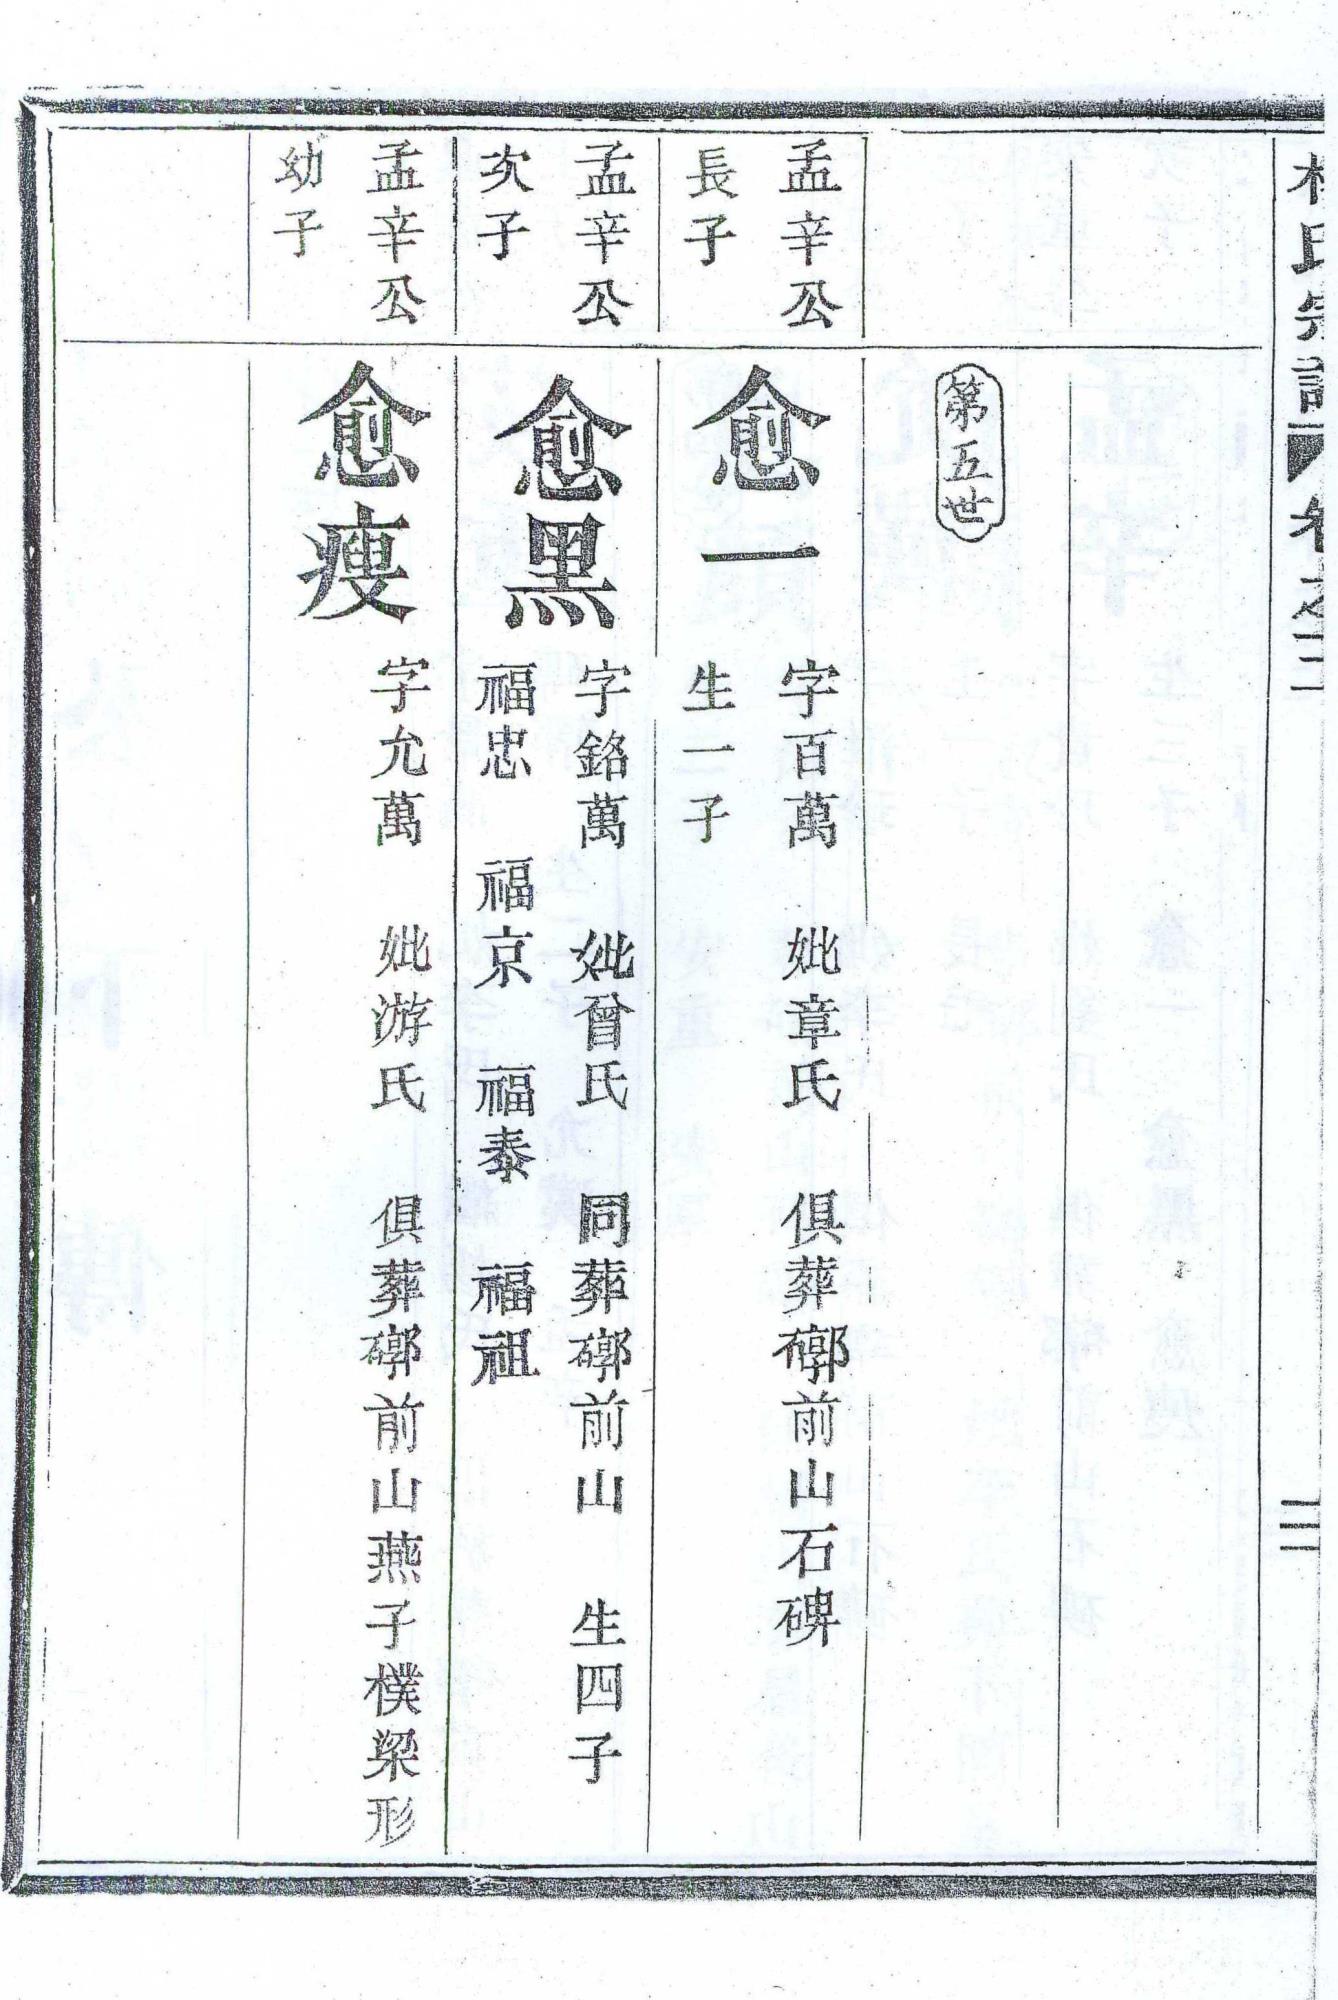 氏宗譜 卷之二
三
第五世
孟辛公
長子
愈一
字百萬 妣章氏 俱葬𥕏前山石碑
生一子
孟辛公
次子
愈黑
字銘萬 妣曾氏 同葬𥕏前山 生四子
福忠 福京 福泰 福祖
孟辛公
幼子
愈瘦
字允萬 妣游氏 俱葬𥕏前山燕子樸梁形